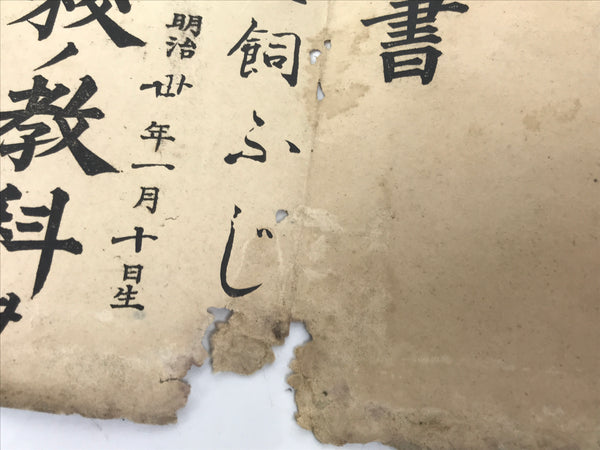 書
飼ふじ
明治丗年一月十日生
ノ教科